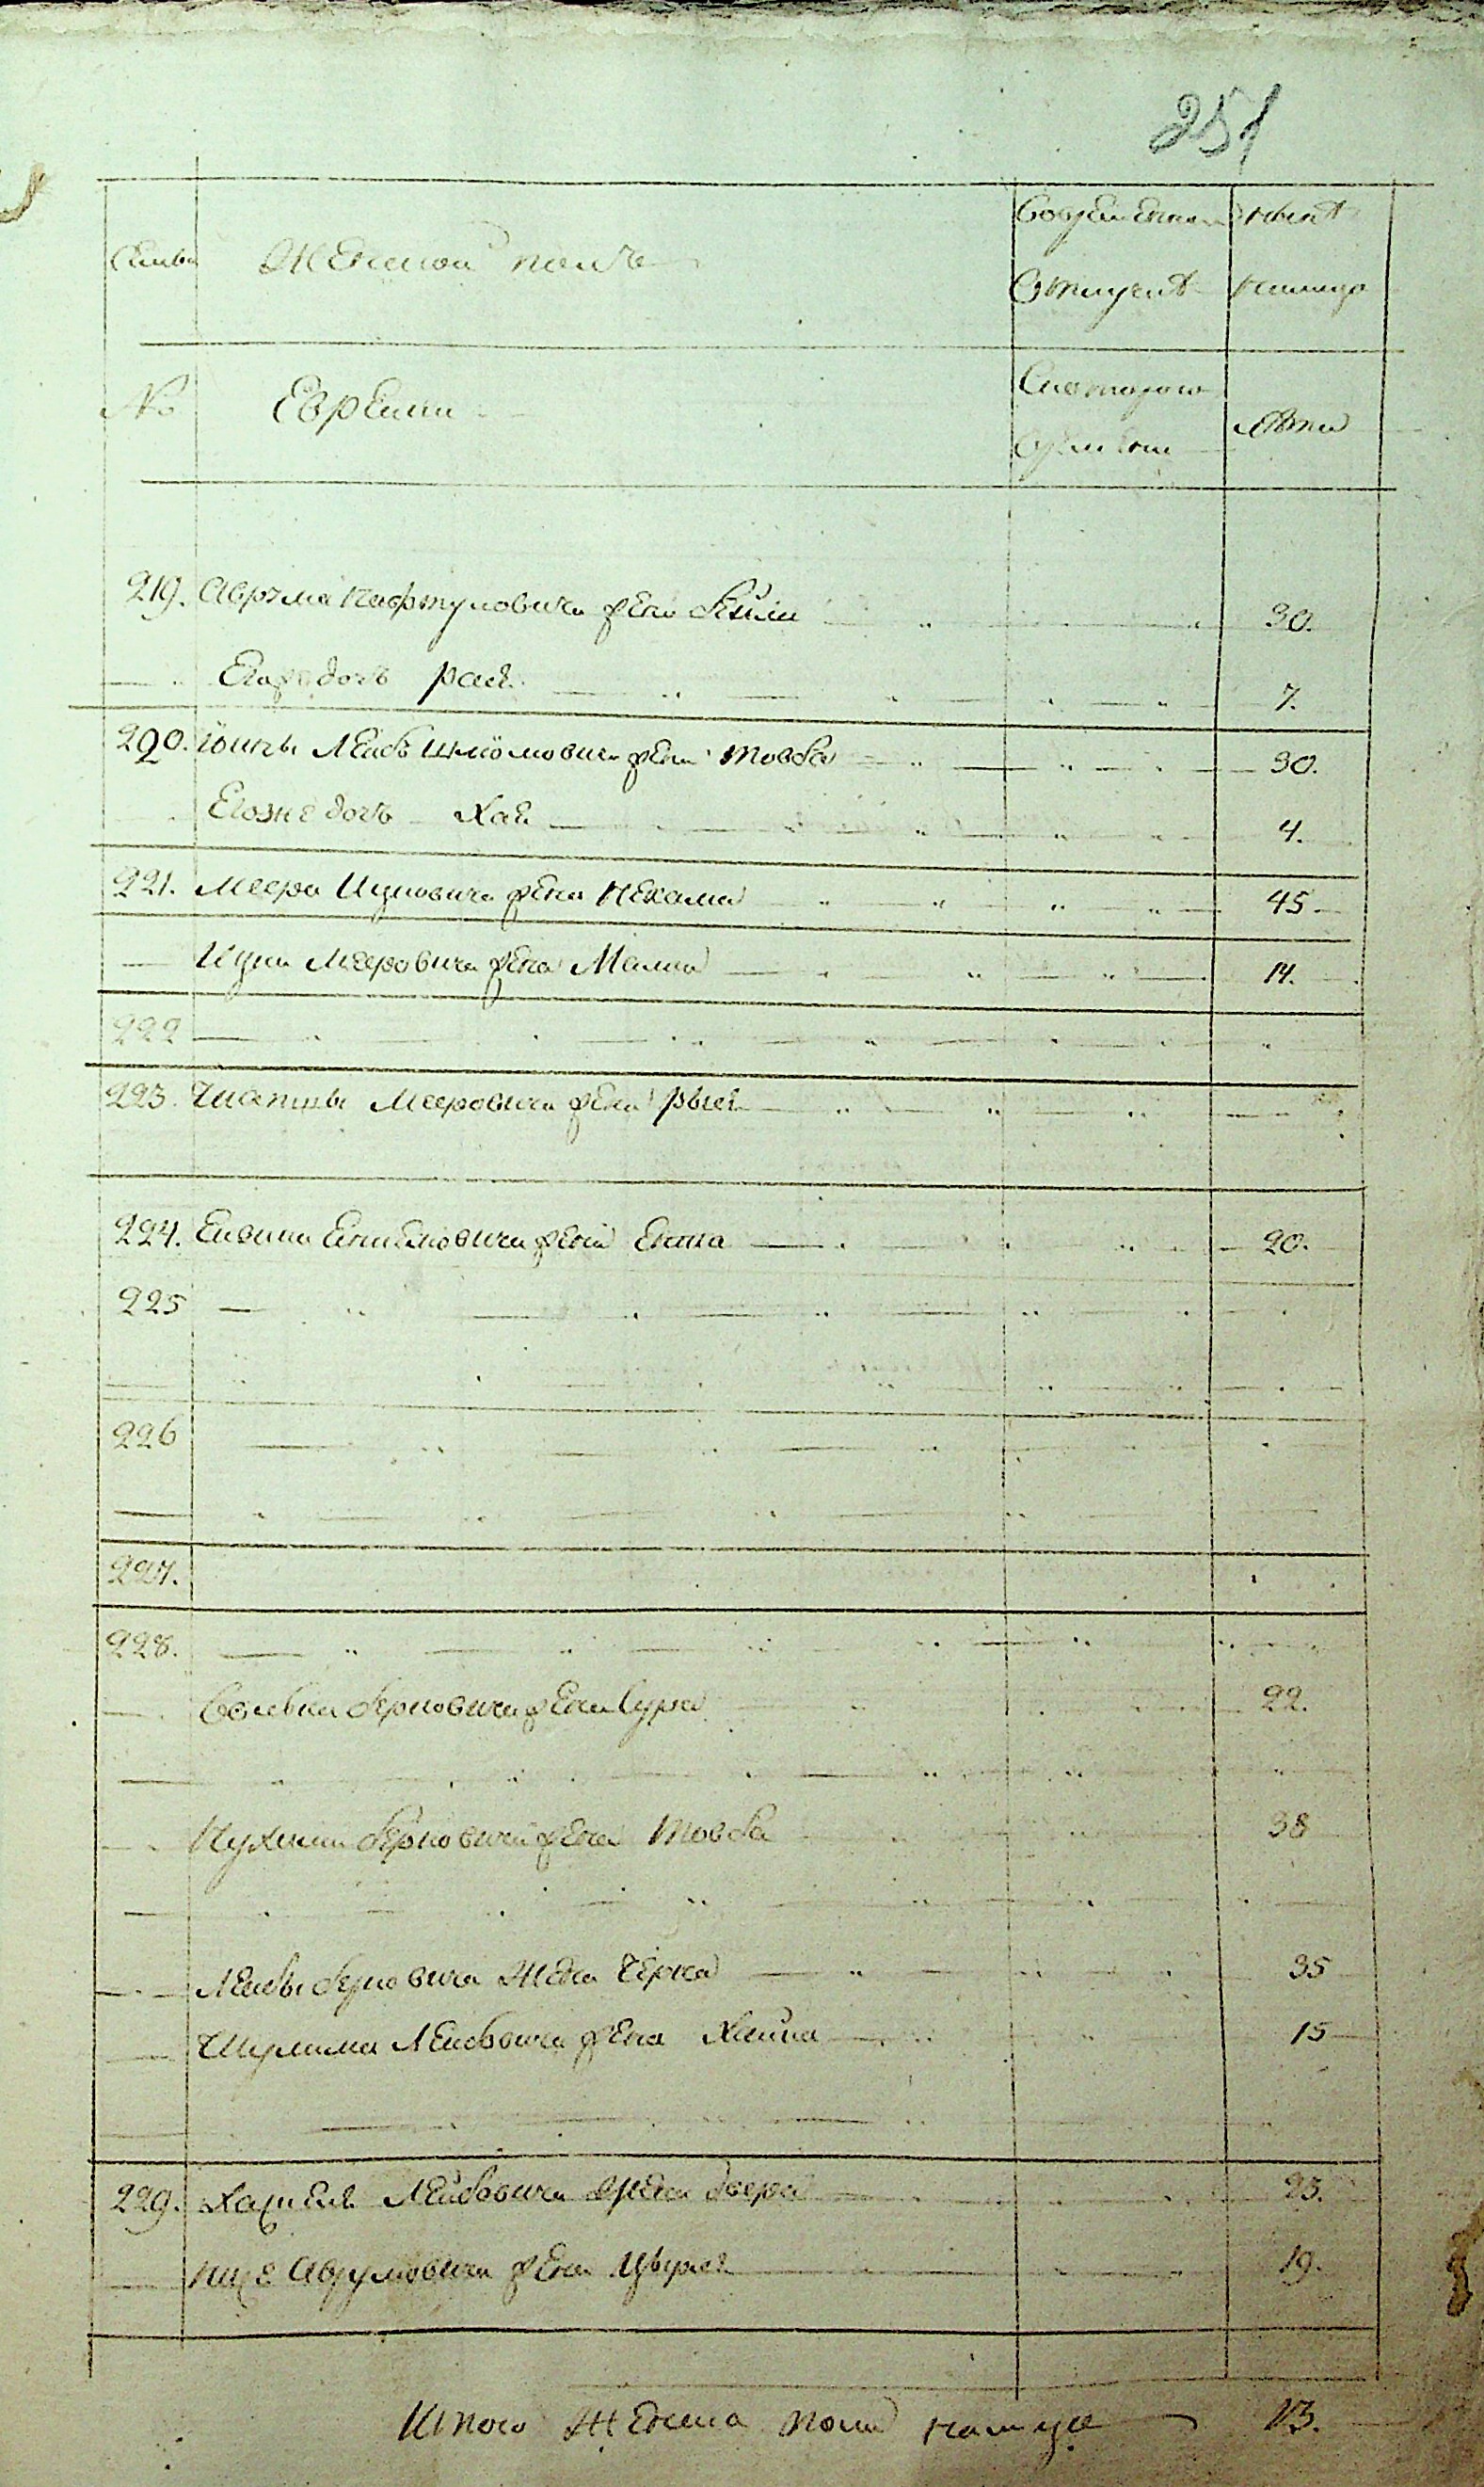 251
Семьи Женской полъ Во временной отлучке ныне налицо
№ Еврейки С котораго времени Лета
219. Аврума Нафтуловича жена Бейла 30.
Его же дочь Рася 7.
220. Йойны Лейбъ Шлиомовича жена Товба 30.
Его же дочь Хая 4.
221. Меера Ицковича жена Нехама 45
Ицка Мееровича жена Малка 14.
222
223. Мееровича жена Рыся
224. жена Ента 20.
225
226
227.
228.
Берковича жена Сура 22.
Нухима Берковича жена Товба 38
Лейбы Берковича жена Черна 35
Шулима Лейбовича жена Хайна 15
229. Лейбовича жена Двера 23.
Аврумовича жена 19.
Итого женска пола налице 13.